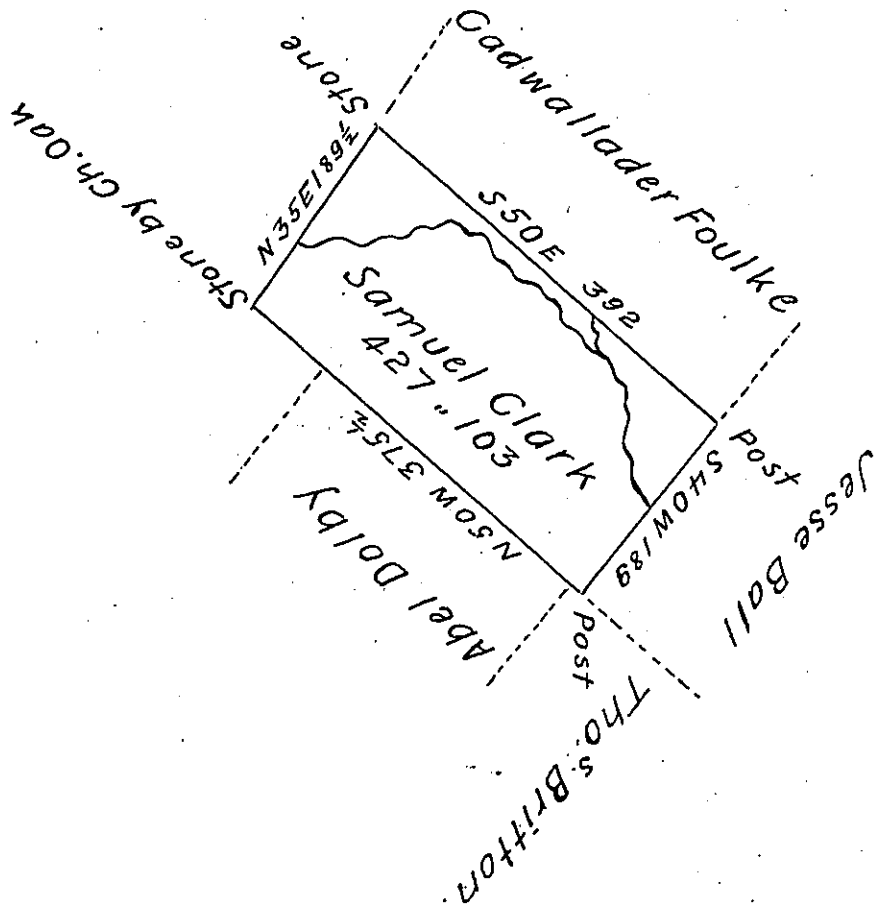 Cadwallader Foulke
Stone
Stone by Ch. Oak
N35E189½
S50E 392
Samuel Clark
427 " 103
Post
S40W189
Jesse Ball
N50W 375½
Abel Dolby
Post
Tho. S. Britton.